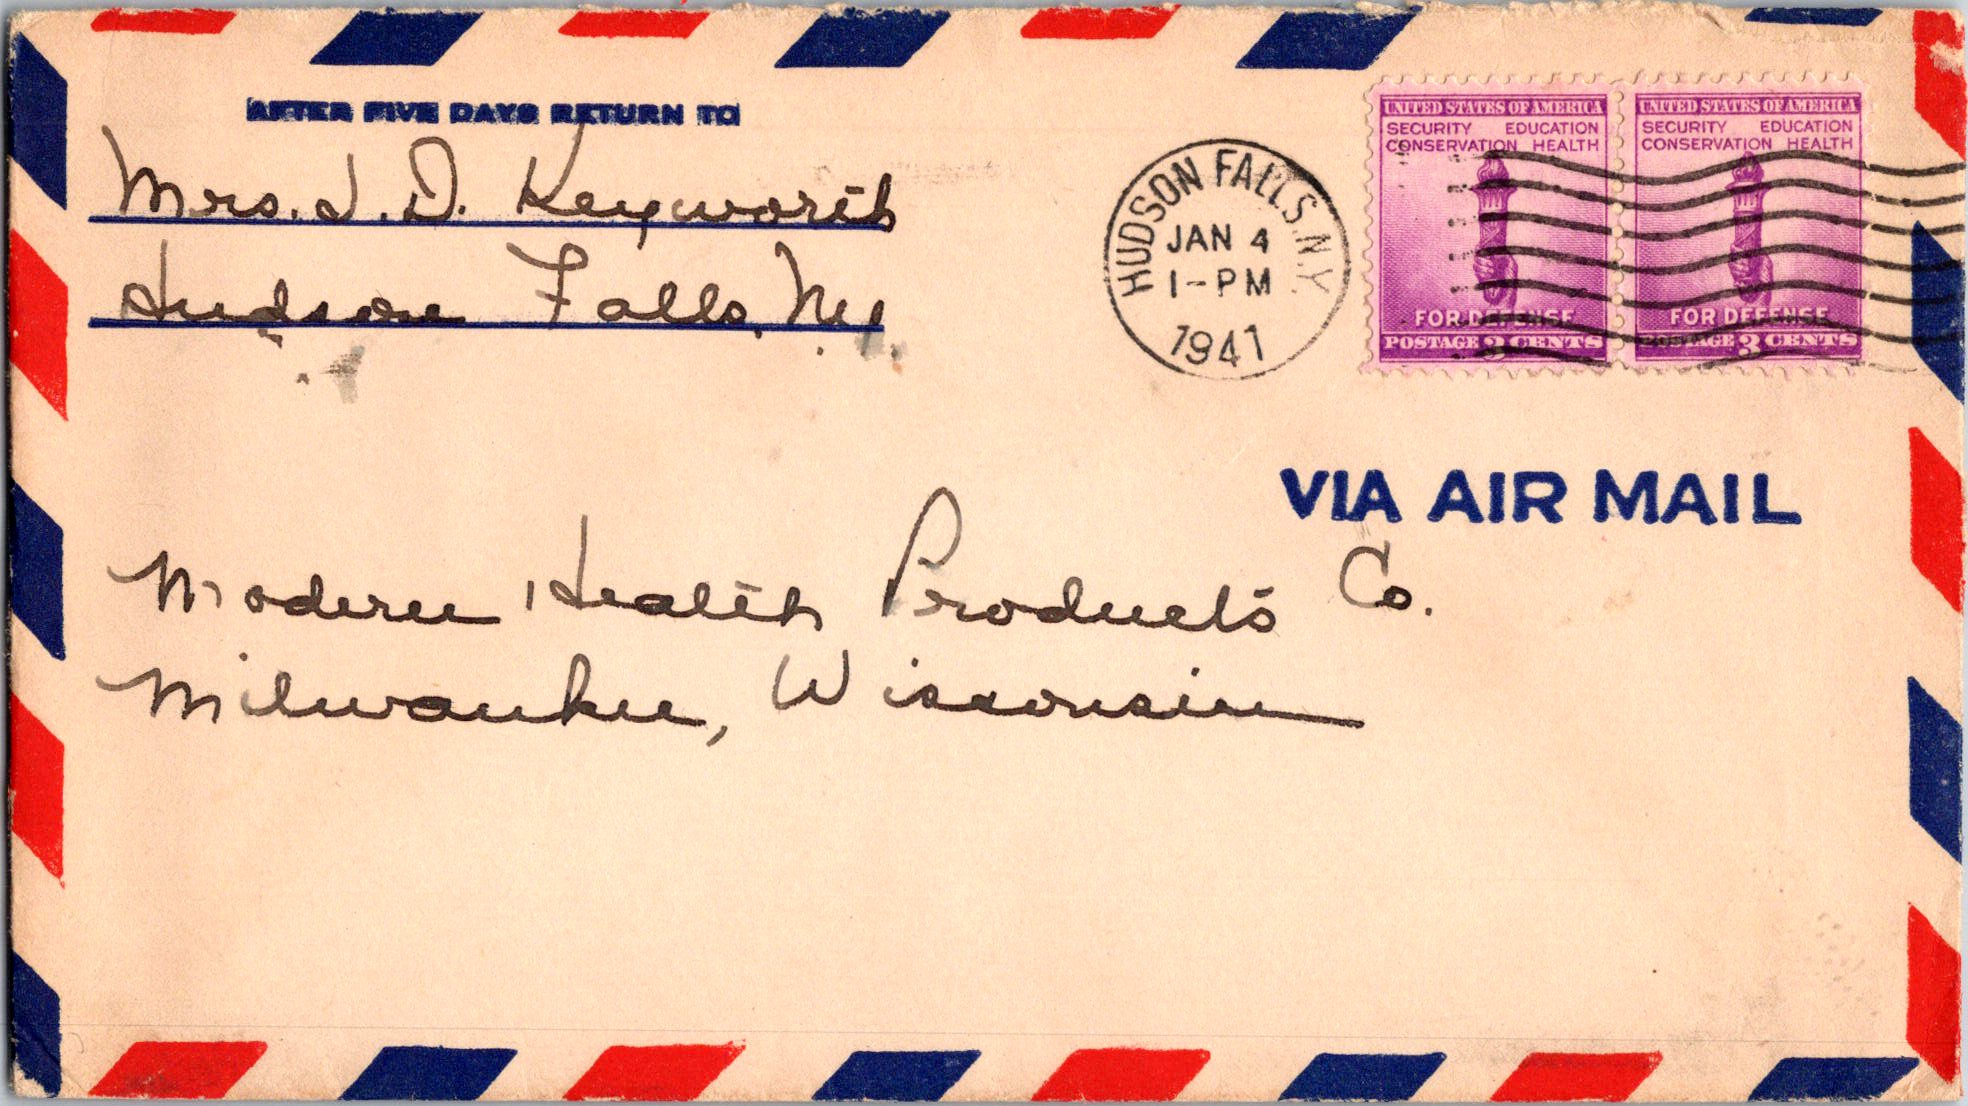 AFTER FIVE DAYS RETURN TO
Mrs. J. D. Keyworth
Hudson Falls, N.Y.
HUDSON FALLS. N.Y.
JAN 4
1-PM
1941
UNITED STATES OF AMERICA
SECURITY EDUCATION
CONSERVATION HEALTH
FOR DEFENSE
POSTAGE 3 CENTS
UNITED STATES OF AMERICA
SECURITY EDUCATION
CONSERVATION HEALTH
FOR DEFENSE
POSTAGE 3 CENTS
VIA AIR MAIL
Modern Health Products Co.
Milwaukee, Wisconsin